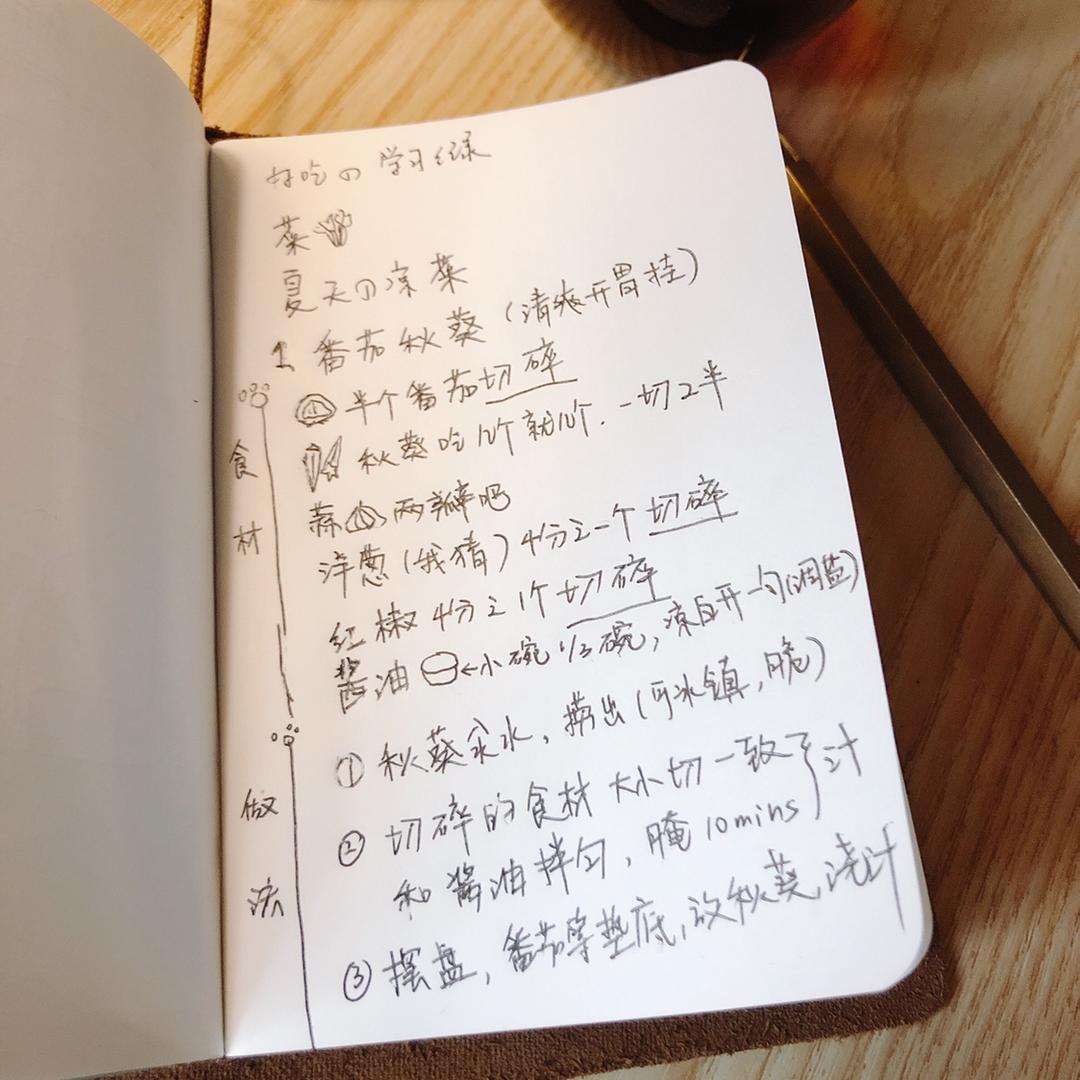 好吃の学习纪录
菜
夏天の凉菜
1. 番茄秋葵（清爽开胃挂）
半个番茄切碎
秋葵吃几个就几个．一切2半
蒜 两瓣吧
洋葱（我猜）4分之一个切碎
红椒4分之1个切碎
酱油 ←小碗1/3碗，凉白开一勺（调盐）
食材
① 秋葵汆水，捞出（可冰镇，脆）
② 切碎的食材 大小切一致
和酱油拌匀，腌10mins } 汁
③ 摆盘，番茄等垫底，放秋葵，浇汁
做法